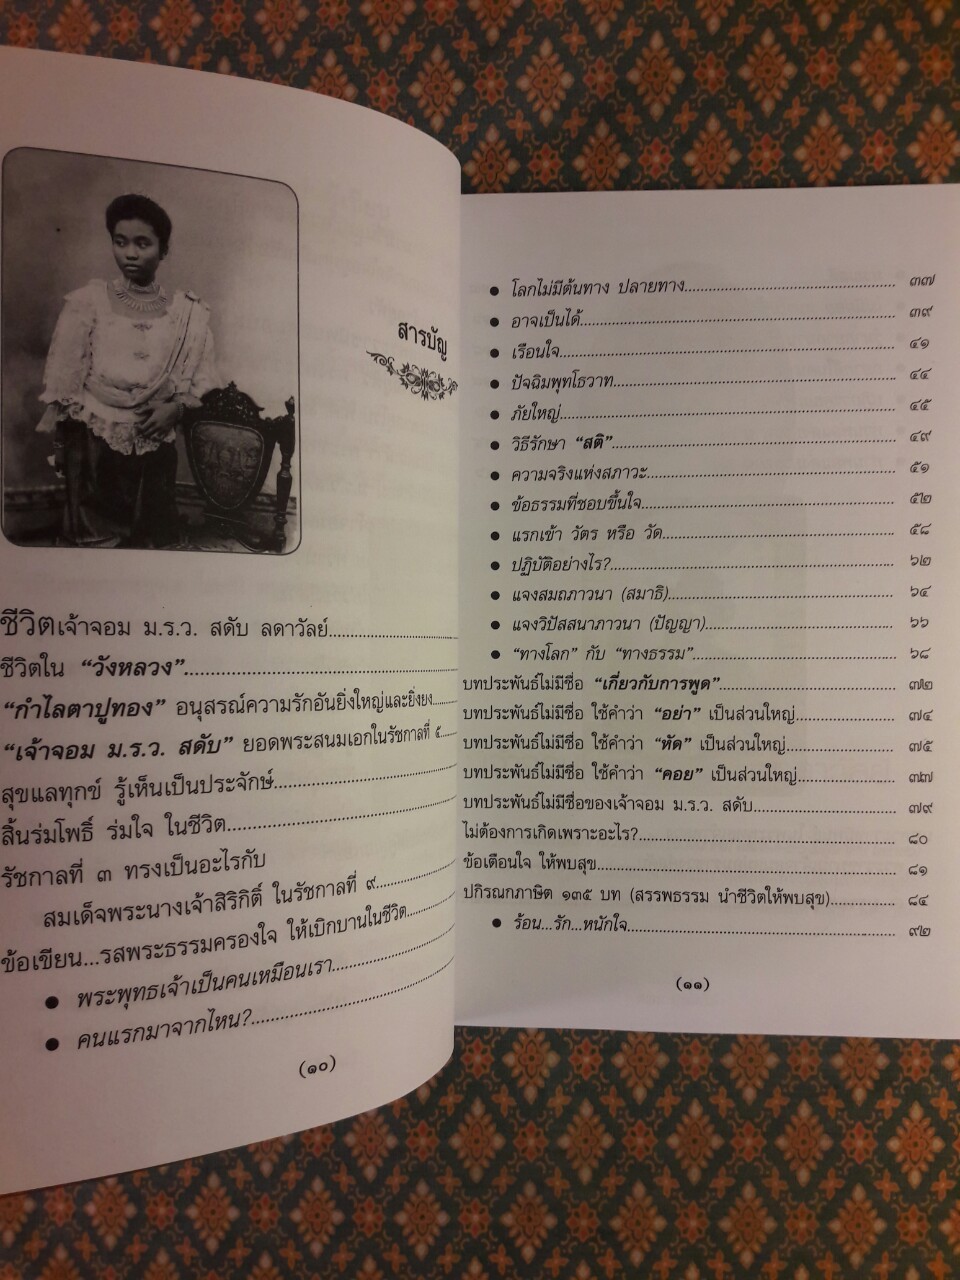 สารบัญ
ชีวิตเจ้าจอม ม.ร.ว. สดับ ลดาวัลย์
ชีวิตใน “วังหลวง”
“กำไลตาปูทอง” อนุสรณ์ความรักอันยิ่งใหญ่และยิ่งยง
“เจ้าจอม ม.ร.ว. สดับ” ยอดพระสนมเอกในรัชกาลที่ ๕
สุขแลทุกข์ รู้เห็นเป็นประจักษ์
สิ้นร่มโพธิ์ ร่มใจ ในชีวิต
รัชกาลที่ ๓ ทรงเป็นอะไรกับ
สมเด็จพระนางเจ้าสิริกิติ์ ในรัชกาลที่ ๙
ข้อเขียน...รสพระธรรมครองใจ ให้เบิกบานในชีวิต
● พระพุทธเจ้าเป็นคนเหมือนเรา
● คนแรกมาจากไหน?
(๑๐)
● โลกไม่มีต้นทาง ปลายทาง ๓๗
● อาจเป็นได้ ๓๙
● เรือนใจ ๔๑
● ปัจฉิมพุทโธวาท ๔๔
● ภัยใหญ่ ๔๕
● วิธีรักษา “สติ” ๔๙
● ความจริงแห่งสภาวะ ๕๑
● ข้อธรรมที่ชอบขึ้นใจ ๕๒
● แรกเข้า วัตร หรือ วัด ๕๘
● ปฏิบัติอย่างไร? ๖๒
● แจงสมถภาวนา (สมาธิ) ๖๔
● แจงวิปัสสนาภาวนา (ปัญญา) ๖๖
● “ทางโลก” กับ “ทางธรรม” ๖๘
บทประพันธ์ไม่มีชื่อ “เกี่ยวกับการพูด” ๗๒
บทประพันธ์ไม่มีชื่อ ใช้คำว่า “อย่า” เป็นส่วนใหญ่ ๗๔
บทประพันธ์ไม่มีชื่อ ใช้คำว่า “หัด” เป็นส่วนใหญ่ ๗๕
บทประพันธ์ไม่มีชื่อ ใช้คำว่า “คอย” เป็นส่วนใหญ่ ๗๗
บทประพันธ์ไม่มีชื่อของเจ้าจอม ม.ร.ว. สดับ ๗๙
ไม่ต้องการเกิดเพราะอะไร? ๘๐
ข้อเตือนใจ ให้พบสุข ๘๑
ปกิรณกภาษิต ๑๓๕ บท (สรรพธรรม นำชีวิตให้พบสุข) ๘๔
● ร้อน...รัก...หนักใจ ๙๒
(๑๑)